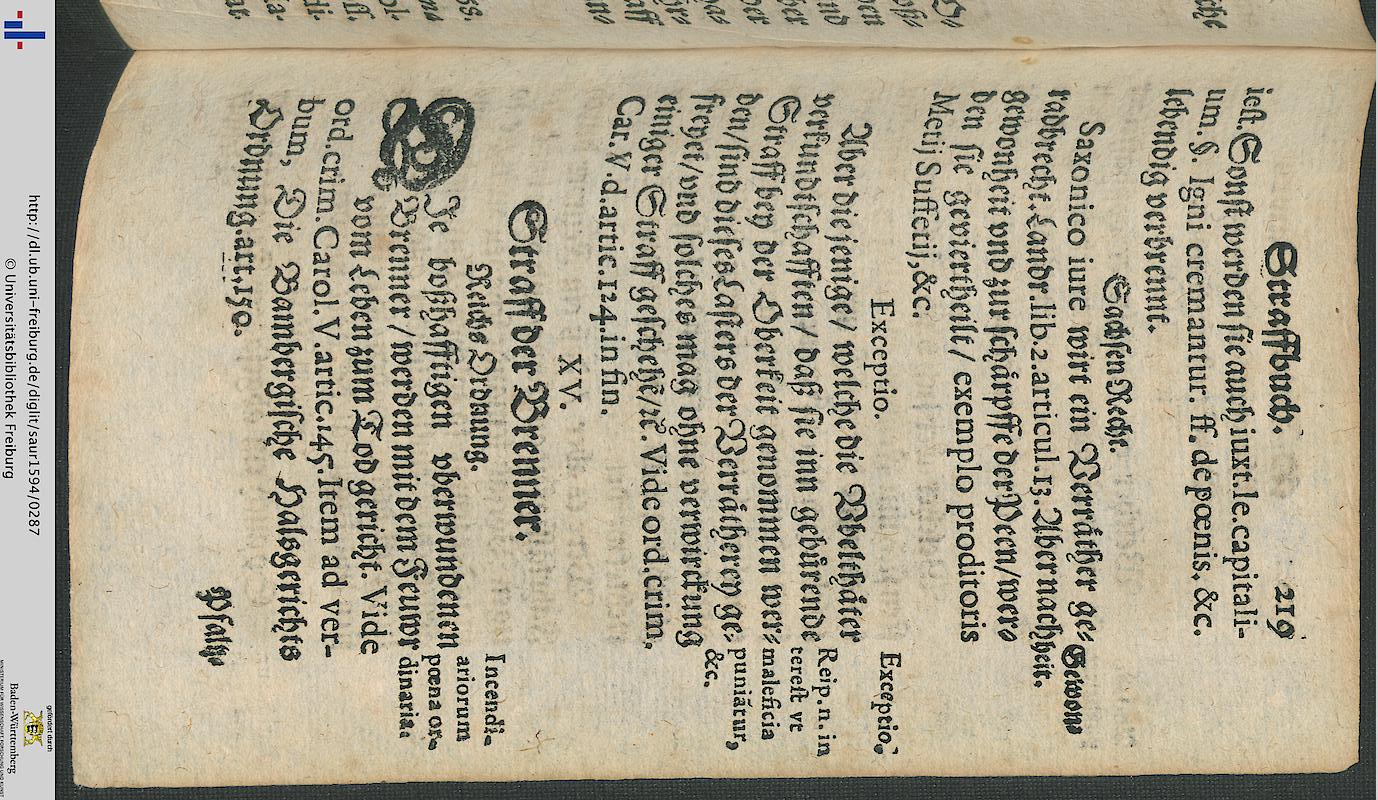 Straffbuch. 219
iest. Sonst werden sie auch iuxt. le. capitali-
um. §. Igni cremantur. ff. de pœnis. &c.
lebendig verbrennt.
Sachsen Recht.
Saxonico iure wirt ein Verräther ge-
radbrecht. Landr. lib. 2. articul. 13. Aber nach heit.
gewonheit vnd zur schärpffe der Peen/ wer-
den sie geviertheilt/ exemplo proditoris
Metij Suffetij, &c.
Gewon
Exceptio.
Aber die jenige/ welche die Vbelthäter
verkundtschafften/ daß sie inn gebürende
Straff bey der Oberkeit genommen wer-
den/ sind dieses Lasters der Verrätherey ge-
freyet/ vnd solches mag ohne verwirckung
einiger Straff geschehē/ ꝛc. Vide ord. crim.
Car. V. d. artic. 124. in fin.
Exceptio.
Reip. n. in
terest vt
maleficia
puniātur,
&c.
XV.
Straff der Brenner.
Reichs Ordnung.
DJe boßhafftigen vberwundenen
Brenner/ werden mit dem Feuwr
vom Leben zum Tod gericht. Vide
ord. crim. Carol. V. artic. 145. Item ad ver-
bum, Die Bambergische Halsgerichts
Ordnung. art. 150.
Incendi-
ariorum
pœna or-
dinaria.
Pfaltz-
http://dl.ub.uni-freiburg.de/diglit/saur1594/0287
© Universitätsbibliothek Freiburg
gefördert durch
Baden-Württemberg